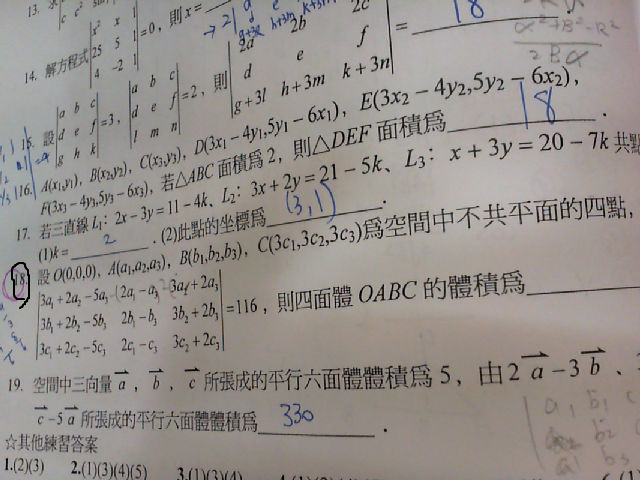 14. 解方程式 | x² x 1 | 25 5 1 | 4 -2 1 | =0,則x=
15. 設 | a b c | d e f | g h k | =3, | a b c | d e f | l m n | =2,則 | 2a 2b 2c | d e f | g+3l h+3m k+3n | = 18
16. A(x₁,y₁), B(x₂,y₂), C(x₃,y₃), D(3x₁-4y₁,5y₁-6x₁), E(3x₂-4y₂,5y₂-6x₂),
F(3x₃-4y₃,5y₃-6x₃), 若△ABC面積爲2, 則△DEF面積爲 18 .
17. 若三直線L₁: 2x-3y=11-4k、L₂: 3x+2y=21-5k、L₃: x+3y=20-7k 共點
(1)k= 2 . (2)此點的坐標爲 (3,1) .
18. 設O(0,0,0), A(a₁,a₂,a₃), B(b₁,b₂,b₃), C(3c₁,3c₂,3c₃)爲空間中不共平面的四點,
| 3a₁+2a₂-5a₃ 2a₁-a₃ 3a₂+2a₃ |
| 3b₁+2b₂-5b₃ 2b₁-b₃ 3b₂+2b₃ | =116,則四面體OABC的體積爲
| 3c₁+2c₂-5c₃ 2c₁-c₃ 3c₂+2c₃ |
19. 空間中三向量 a, b, c 所張成的平行六面體體積爲5, 由2a-3b、
c-5a 所張成的平行六面體體積爲 330 .
☆其他練習答案
1.(2)(3) 2.(1)(3)(4)(5) 3.(1)(3)(4)